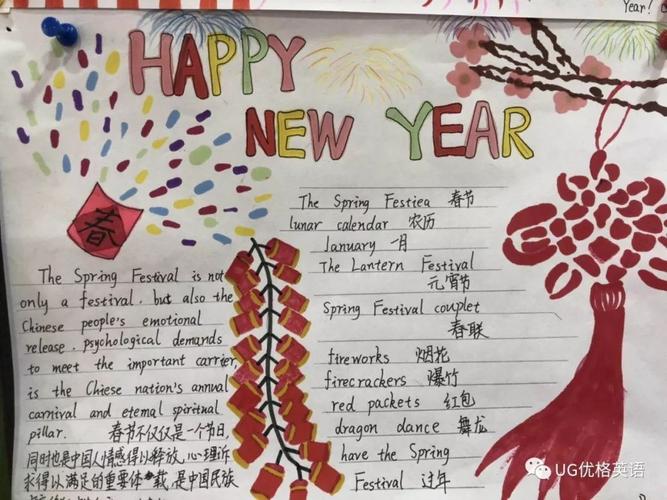 Year!
HAPPY
NEW YEAR
春
The Spring Festival is not
only a festival. but also the
Chinese people's emotional
release. psychological demands
to meet the important carrier,
is the Chiese nation's annual
carnival and etemal spiritual
pillar. 春节不仅仅是一个节日,
同时也是中国人情感得以释放,心理诉
求得以满足的重要体载,是中国民族
The Spring Festiea 春节
lunar calendar 农历
lanuary 一月
The Lantern Festival
元宵节
Spring Festival couplet
春联
fireworks 烟花
firecrackers 爆竹
red packets 红包
dragon dance 舞龙
have the Spring
Festival 过年
UG优格英语